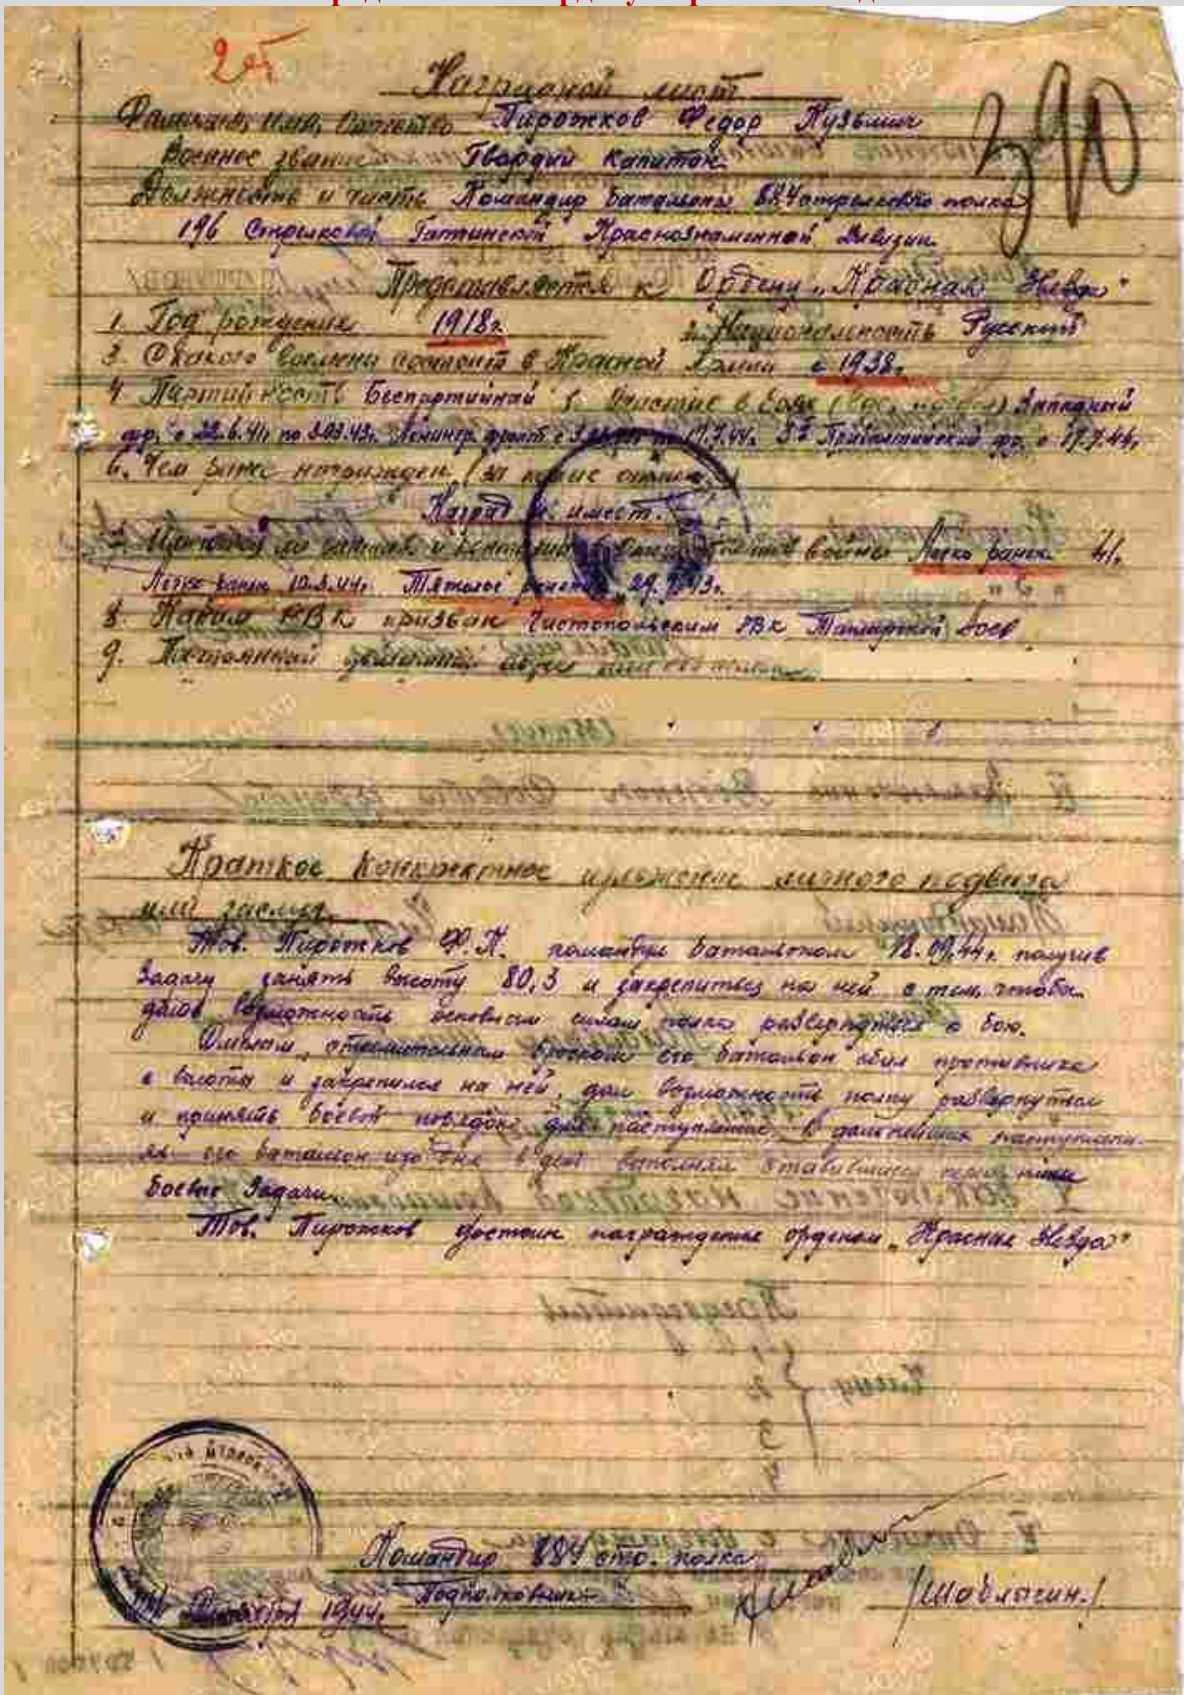 2 эт
390
Наградной лист
Фамилия, имя, Отчество Пирожков Федор Кузьмич
Военное звание Гвардии капитан
Должность и часть Командир батальона 884 стрелкового полка
196 Стрелковой Гатчинской Краснознаменной дивизии
Представляется к Ордену „Красная Звезда"
1. Год рождения 1918г. 2. Национальность Русский
3. С какого времени состоит в Красной Армии с 1938г.
4 Партийность Беспартийный 5. Участие в боях Западный
фр. с 22.6.41г по 3.03.43г. Ленингр. фронт по 17.7.44г. 3й Прибалтийский фр. с 17.7.44г.
6. Чем ранее награжден (за какие отлич.)
Наград не имеет.
7. войны Легко ранен 41г.
Легко ранен 10.2.44г. Тяжелое 29.7.43г.
8. Каким РВК призван Чистопольским РВК Татарской
9. Постоянный адрес
Краткое конкретное изложение личного подвига
или заслуг.
Тов. Пирожков Ф.К. командуя батальоном 18.09.44г. получив
задачу занять высоту 80,3 и закрепиться на ней с тем, чтобы
дать возможность основным силам полка развернуться к бою.
Смелым, стремительным броском его батальон сбил противника
с высоты и закрепился на ней, дал возможность полку развернуться
и принять боевой порядок для наступления. В дальнейшем наступлени-
ях его батальон изо дня в день выполнял ставившиеся перед ним
боевые задачи.
Тов. Пирожков достоин награждения орденом „Красная Звезда"
Командир 884 стр. полка
Подполковник /Шаблагин./
1944г.